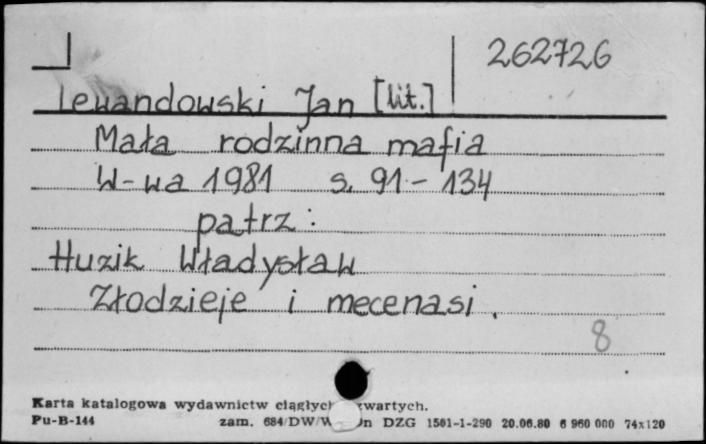 262726
Lewandowski Jan [lit.]
Mała rodzinna mafia
W-wa 1981 s. 91-134
patrz:
Huzik Władysław
Złodzieje i mecenasi.
8
Karta katalogowa wydawnictw ciągłych zwartych.
Pu-B-144 zam. 684/DW/W DZG 1501-1-290 20.06.80 6 960 000 74x120